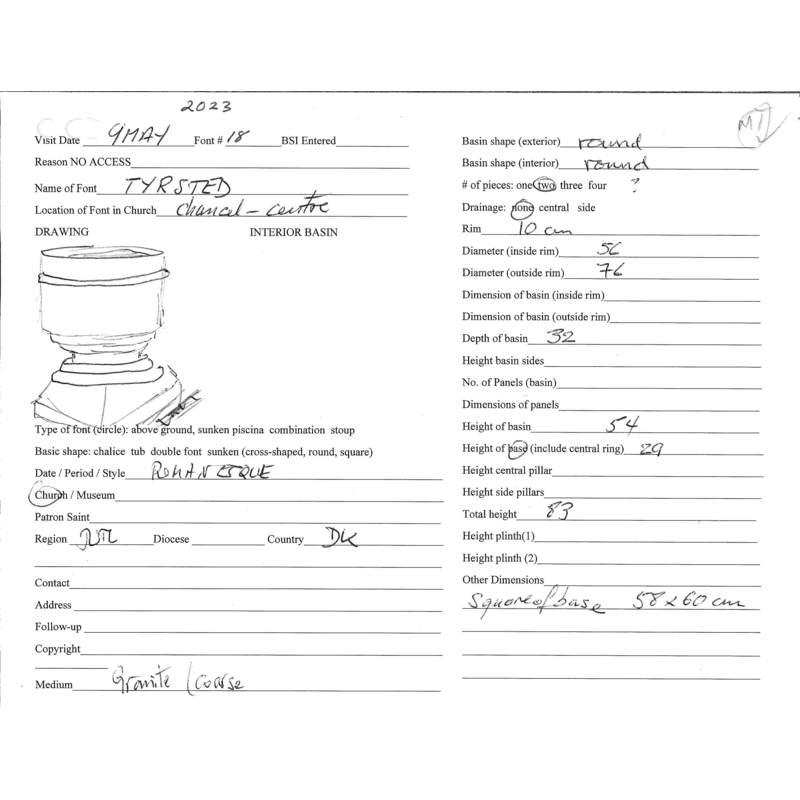 2023
Visit Date 9 MAY Font # 18 BSI Entered
Reason NO ACCESS
Name of Font TYRSTED
Location of Font in Church chancel - centre
DRAWING INTERIOR BASIN
Type of font (circle): above ground, sunken piscina combination stoup
Basic shape: chalice tub double font sunken (cross-shaped, round, square)
Date / Period / Style ROMANESQUE
Church / Museum
Patron Saint
Region JUTL Diocese Country DK
Contact
Address
Follow-up
Copyright
Medium Granite / coarse
Basin shape (exterior) round
Basin shape (interior) round
# of pieces: one two three four ?
Drainage: none central side
Rim 10 cm
Diameter (inside rim) 56
Diameter (outside rim) 76
Dimension of basin (inside rim)
Dimension of basin (outside rim)
Depth of basin 32
Height basin sides
No. of Panels (basin)
Dimensions of panels
Height of basin 54
Height of base (include central ring) 29
Height central pillar
Height side pillars
Total height 83
Height plinth(1)
Height plinth (2)
Other Dimensions
Square of base 58 x 60 cm